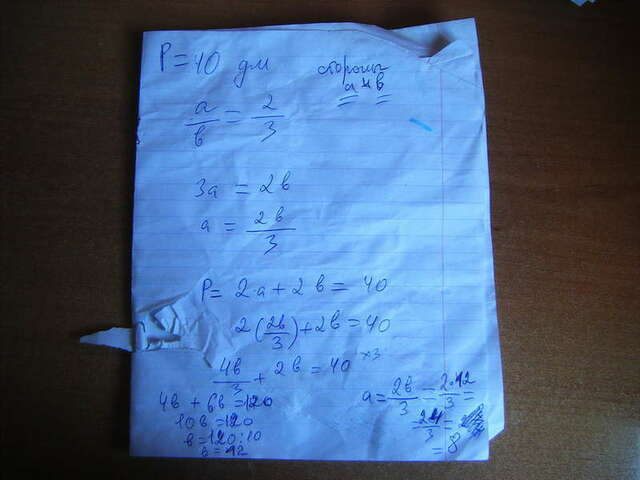 P = 40 дм стороны
a и в
a/в = 2/3
3a = 2в
a = 2в/3
P = 2·a + 2в = 40
2(2в/3) + 2в = 40
4в/3 + 2в = 40 ×3
4в + 6в = 120
10в = 120
в = 120:10
в = 12
a = 2в/3 = 2·12/3 =
24/3 =
= 8